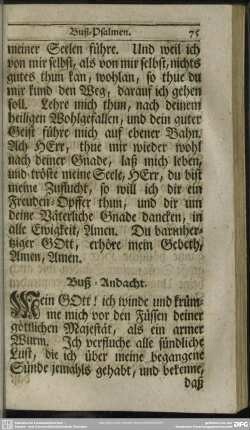 Buß-Psalmen. 75
meiner Seelen führe. Und weil ich
von mir selbst, als von mir selbst, nichts
gutes thun kan, wohlan, so thue du
mir kund den Weg, darauf ich gehen
soll. Lehre mich thun, nach deinem
heiligen Wohlgefallen, und dein guter
Geist führe mich auf ebener Bahn.
Ach HErr, thue mir wieder wohl
nach deiner Gnade, laß mich leben,
und tröste meine Seele, HErr, du bist
meine Zuflucht, so will ich dir ein
Freuden-Opffer thun, und dir um
deine Väterliche Gnade dancken, in
alle Ewigkeit, Amen. Du barmher-
tziger GOtt, erhöre mein Gebeth,
Amen, Amen.
Buß-Andacht.
Mein GOtt! ich winde und krüm-
me mich vor den Füssen deiner
göttlichen Majestät, als ein armer
Wurm. Ich verfluche alle sündliche
Lust, die ich über meine begangene
Sünde jemahls gehabt, und bekenne,
daß